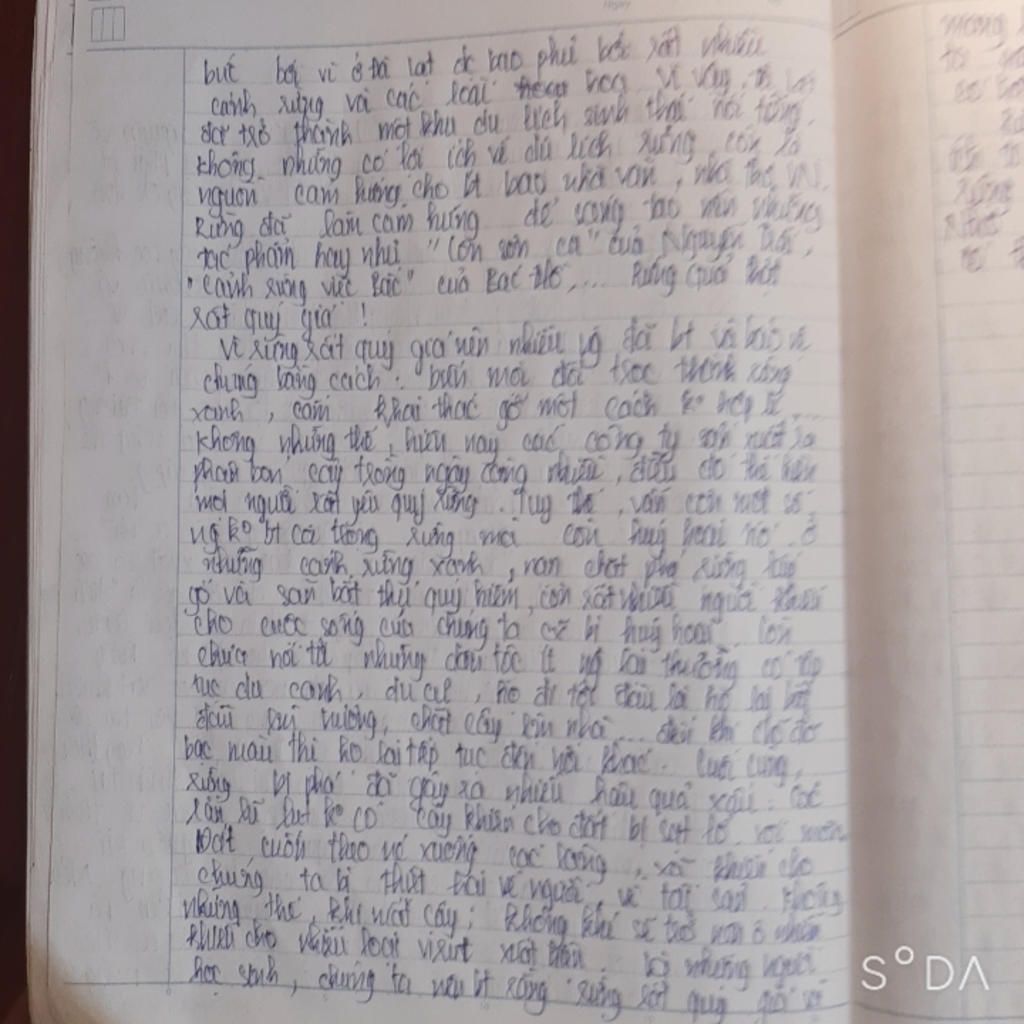 bức bởi vì ở Đà Lạt đc bao phủ bởi rất nhiều
cảnh rừng và các loài hoa. Vì vậy,
đã trở thành một khu du lịch sinh thái nổi tiếng.
không những có lợi ích về du lịch rừng còn là
nguồn cảm hứng cho bt bao nhà văn, nhà thơ VN.
Rừng đã làm cảm hứng để sáng tạo nên những
tác phẩm hay như "Côn sơn ca" của Nguyễn Trãi,
"Cảnh rừng Việt Bắc" của Bác Hồ,... Rừng quả thật
rất quý giá !
Vì rừng rất quý giá nên nhiều ng đã bt và bảo vệ
chúng bằng cách: đồi trọc thành rừng
xanh, cấm khai thác gỗ một cách ko hợp lí ...
không những thế, hiện nay các công ty sản xuất ra
phân bón cây trồng ngày càng nhiều, điều đó thể hiện
mọi người rất yêu quý rừng. Tuy thế, vẫn còn một số
ng ko bt coi trọng rừng mà còn huỷ hoại nó. Ở
những cánh rừng xanh, nạn chặt phá rừng lấy
gỗ và săn bắt thú quý hiếm, còn rất nhiều người khiến
cho cuộc sống của chúng ta cứ bị huỷ hoại. Còn
chưa nói tới những dân tộc ít ng lại thường có tập
tục du canh, du cư, họ đi tới đâu lại
đầu nương, chặt cây làm nhà... đến khi chỗ đó
bạc màu thì họ lại tiếp tục đến nơi khác. Cuối cùng,
rừng bị phá đã gây ra nhiều hậu quả xấu: các
lần lũ lụt ko có cây khiến cho đất bị sạt lở, rồi nước
đất cuốn theo nó xuống các làng, xã khiến cho
chúng ta bị thiệt hại về người, về tài sản. Không
những thế, khi mất cây; không khí sẽ trở nên ô nhiễm
khiến cho nhiều loại virut xuất hiện. Là những người
học sinh, chúng ta nên bt rằng rừng rất quý giá và
S°DA